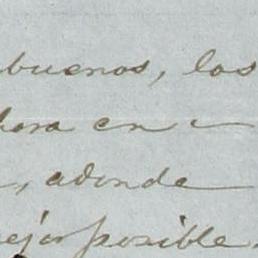 buenos, los
hora en
, adonde
mejor posible.